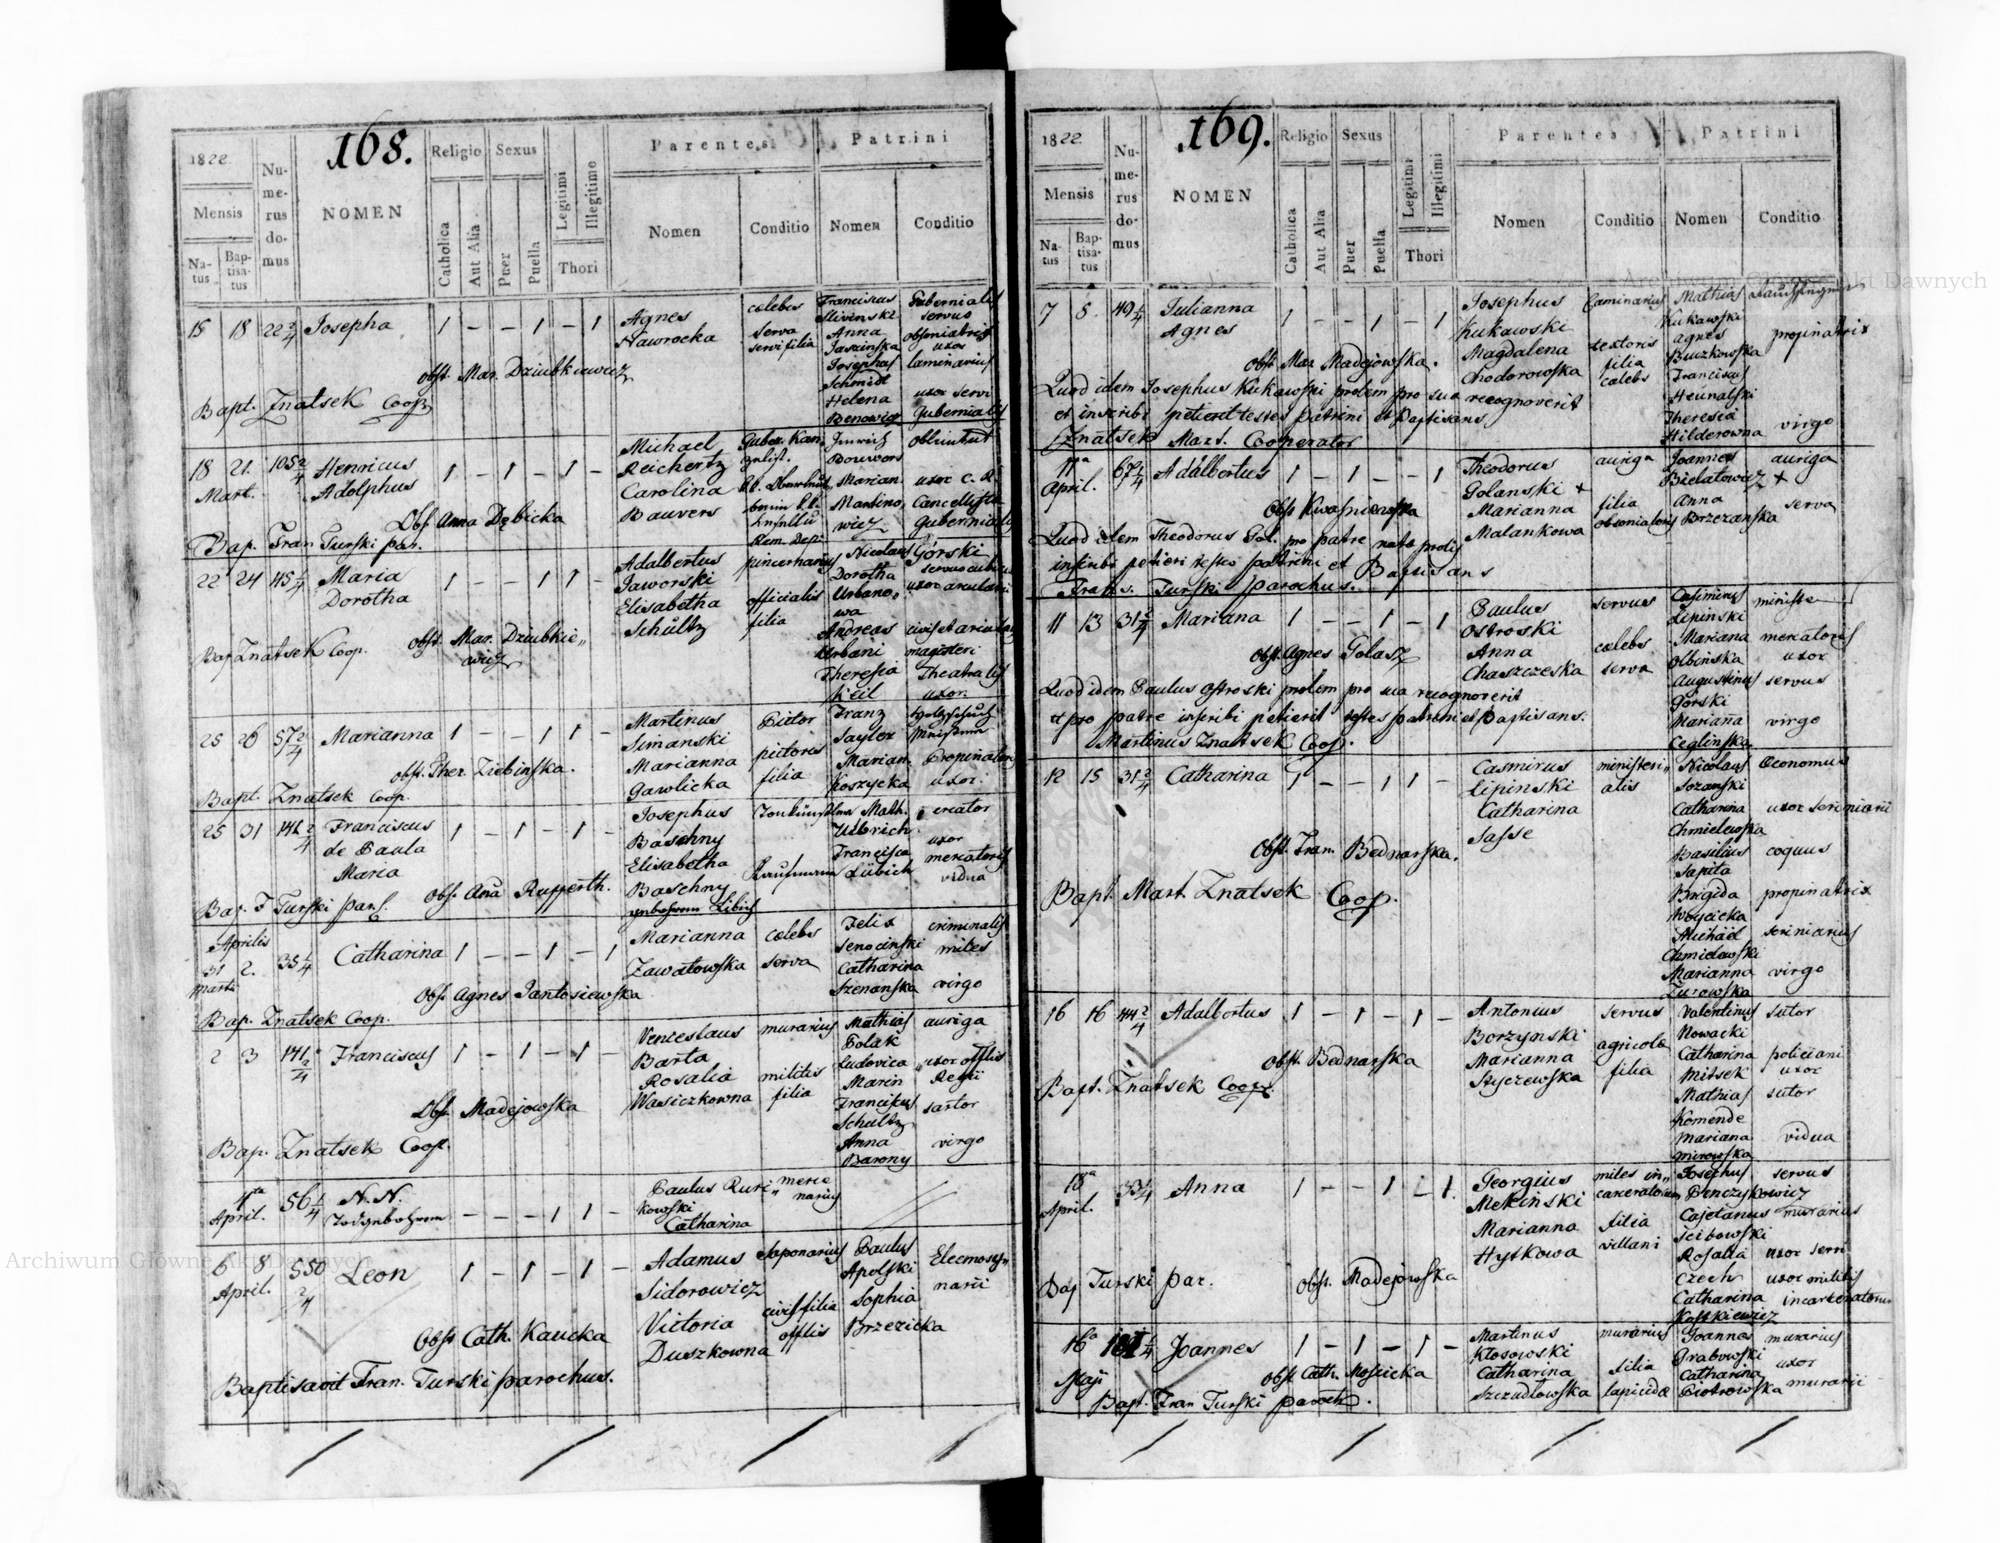 168.
1822.
Mensis
Na-
tus
Bap-
tisa-
tus
Nu-
me-
rus
do-
mus
NOMEN
Religio
Catholica
Aut Alia
Sexus
Puer
Puella
Legitimi
Illegitime
Thori
Parentes
Nomen
Conditio
Patrini
Nomen
Conditio
15 18 22 2/4 Josepha 1 - - 1 - 1
Agnes
Nawrocka
cælebs
serva
servi filia
Franciscus
Slivinski
Anna
Jaszinska
Josephus
Schmidt
Helena
Benowicz
Gubernialis
servus
uxor
laminarius
uxor servi
Gubernialis
Obst. Mar. Dziubkiewicz
Bapt. Znatsek Coop.
18 21 105 2/4 Henricus 1 - 1 - 1 -
Mart. Adolphus
Michael
Reichertz
Carolina
Bauvers
Marian
Martino,,
wicz
uxor c. R.
Cancellistæ
Gubernialis
Obs. Anna Dębicka
Bap. Fran Turski par.
22 24 45 1/4 Maria 1 - - 1 1 -
Dorotha
Adalbertus
Jaworski
Elisabetha
Schültz
pincernarius
officialis
filia
Nicolaus Górski
Dorotha
Urbano,,
wa
Andreas
Urbani
Theresia
uxor arcularii
magisteri
Theatralis
uxor
Obst. Mar. Dziubkie,,
wicz
Bap Znatsek Coop.
25 26 57 2/4 Marianna 1 - - 1 1 -
Martinus
Simanski
Marianna
Gawlicka
Pictor
pictoris
filia
Franz
Sayler
Marian.
Koszycka
Propinatoris
uxor.
Obst. Ther. Ziebinska.
Bapt. Znatsek Coop.
25 31 141 2/4 Franciscus 1 - 1 - 1 -
de Paula
Maria
Josephus
Baschny
Elisabetha
Baschny
Tonkünstler
Kaufmann
Math.
Ulbrich
Francisca
Lübich
uxor
mercatoris
vidua
Bap. F Turski par. Obs. Aña Rupperth.
Aprilis
31 2. 35 1/4 Catharina 1 - - 1 - 1
Martii
Marianna
Zawatowska
cælebs
serva
Felix
Senocinski
Catharina
Szenanska
criminalis
miles
virgo
Obs. Agnes Jantosiewska
Bap. Znatsek Coop.
2 3 141 2/4 Franciscus 1 - 1 - 1 -
Venceslaus
Barta
Rosalia
Wasiczkowna
murarius
militis
filia
Mathias
Polak
Ludovica
Marin
Franciscus
Schultz
Anna
Barony
auriga
uxor offlis
Regii
sartor
virgo
Obs. Madejowska
Bap. Znatsek Coop.
4ta 56 1/4 N. N. - - - 1 1 -
April.
Paulus Ruri,,
kowski
Catharina
merce
narius
6 8 550 2/4 Leon 1 - 1 - 1 -
April.
Adamus
Sidorowicz
Victoria
Duszkowna
Saponarius
civis filia
offlis
Paulus
Apolski
Sophia
Brzezicka
Eleemosy,,
narii
Obst Cath. Kaucka
Baptisavit Fran. Turski parochus.
169.
1822.
Mensis
Na-
tus
Bap-
tisa-
tus
Nu-
me-
rus
do-
mus
NOMEN
Religio
Catholica
Aut Alia
Sexus
Puer
Puella
Legitimi
Illegitimi
Thori
Parentes
Nomen
Conditio
Patrini
Nomen
Conditio
7 8. 49 1/4 Julianna 1 - - 1 - 1
Agnes
Josephus
Kukawski
Magdalena
Chodorowska
Caminarius
textoris
filia
cælebs
Mathias
Kukawski
Agnes
Buczkowska
Franciscus
Theresia
Hilderowna
propinatrix
virgo
Obst Mar Madejowska.
Quod idem Josephus Kukawski prolem pro sua recognoverit
et inscribi petierit testes Patrini et Baptisans
Znatsek Mart. Cooperator
11a 67 1/4 Adalbertus 1 - 1 - - 1
April.
Theodorus
Golanski +
Marianna
Malankowa
auriga
filia
obsoniatoris
Joannes
Bielatowicz +
Anna
Brzezanska
auriga
serva
Obst Kwasniewska
Quod idem Theodorus Gol. pro patre natæ prolis
inscribi petieri testes patrini et Baptisans
Frans. Turski parochus.
11 13 31 2/4 Mariana 1 - - 1 - 1
Paulus
Ostroski
Anna
Chaszczeska
servus
cælebs
serva
Casimirus
Lipinski
Mariana
Olbinska
Augustinus
Górski
Mariana
Ceglinska
mercatoris
uxor
servus
virgo
Obst. Agnes Golasz
Quod idem Paulus Ostroski prolem pro sua recognoverit
et pro patre inscribi petierit testes patrini et Baptisans.
Martinus Znatsek Coop.
12 15 31 2/4 Catharina 1 - - 1 1 -
Casmirus
Lipinski
Catharina
Sasse
ministeri,,
alis
Nicolaus
Sozanski
Catharina
Chmielewska
Basilius
Sapita
Brigida
Woycicka
Michael
Chmielowski
Marianna
Zurowska
Œconomus
uxor scriniarii
coquus
propinatrix
scriniarius
virgo
Obst. Fran. Bednarska.
Bapt. Mart. Znatsek Coop.
16 16 44 2/4 Adalbertus 1 - 1 - 1 -
Antonius
Borzynski
Marianna
Styczewska
servus
agricolæ
filia
Valentinus
Nowacki
Catharina
Mitsek
Mathias
Komende
Mariana
Mirowska
sutor
policiani
uxor
sutor
vidua
Obst. Bednarska
Bapt. Znatsek Coop.
18a 33 1/4 Anna 1 - - 1 - 1.
April.
Georgius
Mekinski
Marianna
Hytkowa
miles in,,
carceratorum
filia
villani
Josephus
Benczykowicz
Cajetanus
Scibowski
Rosalia
Czech
Catharina
Koskiewicz
servus
murarius
uxor servi
uxor militis
incarceratorum
Bap Turski par. Obst. Madejowska
16a 101 1/4 Joannes 1 - 1 - 1 -
Maji
Martinus
Klosowski
Catharina
Szczudlowska
murarius
filia
lapicidæ
Joannes
Grabowski
Catharina
Piotrowska
murarius
uxor
murarii
Obst Cath. Moscicka
Bapt. Fran Turski paroch.
Archiwum Główne Akt Dawnych
Archiwum Główne Akt Dawnych